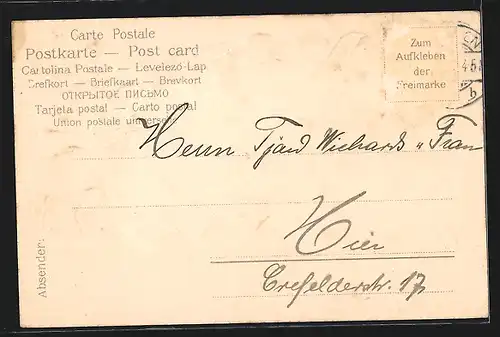 Carte Postale
Postkarte — Post card
Cartolina Postale — Levelezó-Lap
Brefkort — Briefkaart — Brevkort
ОТКРЫТОЕ ПИСЬМО
Tarjeta postal — Carto postal
Union postale universelle
Zum
Aufkleben
der
Freimarke
b
Herrn Tjard Wichards u Frau
Hier
Crefelderstr. 17
Absender: